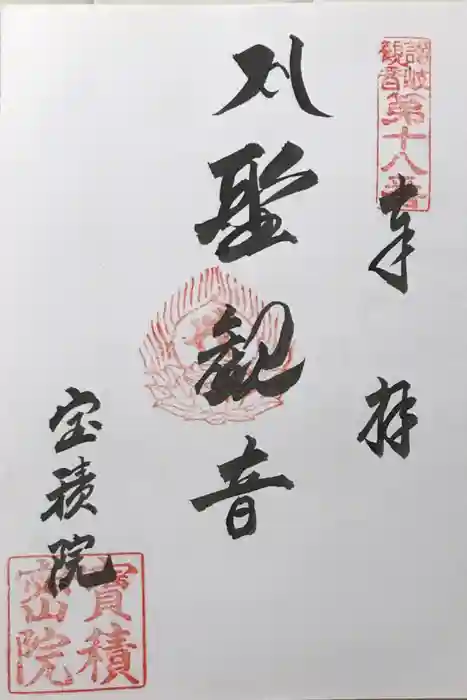 讃岐
觀音
第十八番
奉拝
聖観音
宝積院
寶積
密院